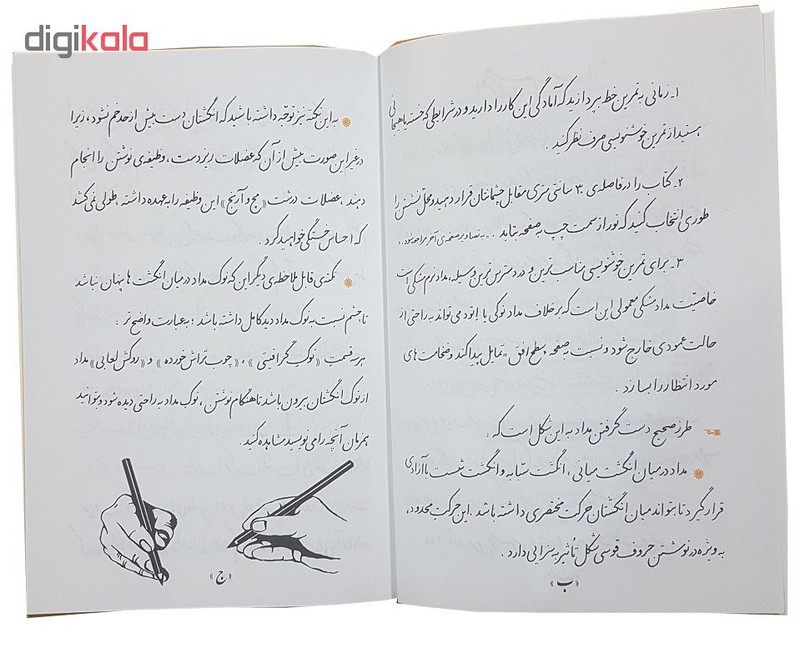 digikala
۱ـ زمانی به تمرین خط بپردازید که آمادگی این کار را دارید و در شرایطی که خسته یا هیجانی
هستید از تمرین خوشنویسی صرف نظر کنید .
۲ـ کتاب را در فاصله‌ی ۳۰ سانتی متری مقابل چشمانتان قرار دهید و محل نشستن را
طوری انتخاب کنید که نور از سمت چپ به صفحه بتابد . « به تصاویر صفحه‌ی آخر مراجعه شود. »
۳ـ برای تمرین خوشنویسی مناسب‌ترین و در دسترس‌ترین وسیله، مداد نرم مشکی است
خاصیت مداد مشکی معمولی این است که برخلاف مداد نوکی یا اتود می‌تواند به راحتی از
حالت عمودی خارج شود و نسبت به صفحه « سطح افق » تمایل پیدا کند و ضخامت های
مورد انتظار را بسازد .
طرز صحیح دست گرفتن مداد به این شکل است که :
مداد در میان انگشت میانی ، انگشت سبابه و انگشت شست با آزادی
قرار گیرد تا بتواند میان انگشتان حرکت مختصری داشته باشد . این حرکت محدود،
به ویژه در نوشتن حروف قوسی شکل تأثیر به سزایی دارد .
« ب »
به این نکته نیز توجه داشته باشید که انگشتان دست بیش از حد خم نشود ، زیرا
در غیر این صورت بیش از آن که عضلات ریز دست ، وظیفه‌ی نوشتن را انجام
دهند ، عضلات درشت « مچ و آرنج » این وظیفه را به عهده داشته ، طولی نمی کشد
که احساس خستگی خواهید کرد .
نکته‌ی قابل ملاحظه‌ی دیگر این که نوک مداد در میان انگشت ها پنهان نباشد
تا چشم نسبت به نوک مداد دید کامل داشته باشد ؛ به عبارت واضح تر :
هر سه قسمت « نوک گرافیتی » ، « چوب تراش خورده » و « روکش لعابی » مداد
از نوک انگشتان بیرون باشد تا هنگام نوشتن ، نوک مداد به راحتی دیده شود و بتوانید
همزمان آنچه را می نویسید مشاهده کنید .
« ج »